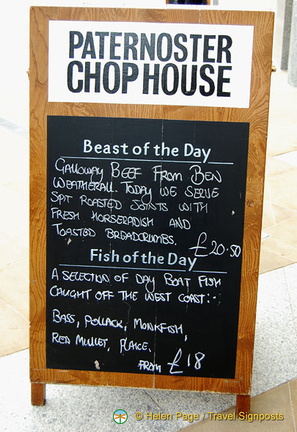 PATERNOSTER
CHOP HOUSE
Beast of the Day
GALLOWAY BEEF FROM BEN
WEATHERALL. TODAY WE SERVE
SPIT ROASTED JOINTS WITH
FRESH HORSERADISH AND
TOASTED BREADCRUMBS. £20.50
Fish of the Day
A SELECTION OF DAY BOAT FISH
CAUGHT OFF THE WEST COAST:-
BASS, POLLACK, MONKFISH,
RED MULLET, PLAICE.
FROM £18
© Helen Page / Travel Signposts